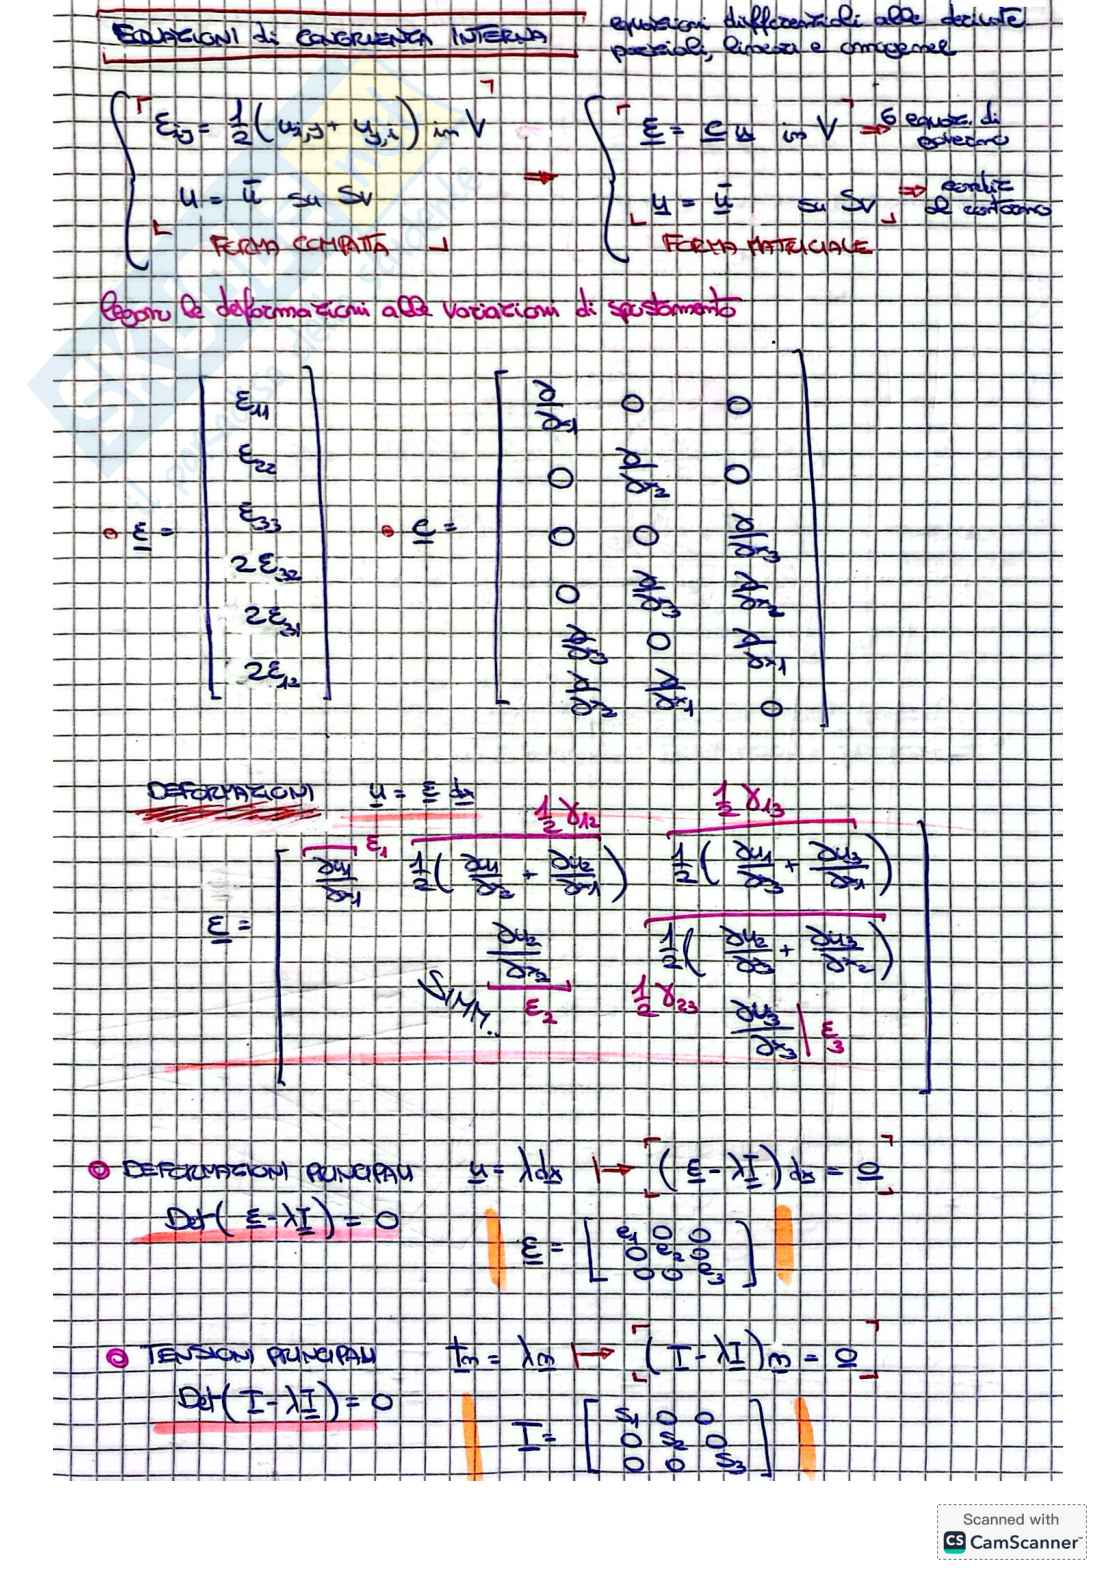 EQUAZIONI di CONGRUENZA INTERNA
equazioni differenziali alle derivate
parziali, lineari e omogenee
εij = 1/2 (ui,j + uj,i) in V
u = ū su Sv
FORMA COMPATTA
⇒
ε = C u in V ⇒ 6 equaz. di
governo
u = ū su Sv ⇒ condiz
al contorno
FORMA MATRICIALE
legano le deformazioni alle variazioni di spostamento
• ε = [ε11
ε22
ε33
2ε32
2ε31
2ε12]
• C = [∂/∂x1 0 0
0 ∂/∂x2 0
0 0 ∂/∂x3
0 ∂/∂x3 ∂/∂x2
∂/∂x3 0 ∂/∂x1
∂/∂x2 ∂/∂x1 0]
DEFORMAZIONI u = ε dx
1/2 γ12 1/2 γ13
ε1
ε = [∂u1/∂x1 1/2(∂u1/∂x2 + ∂u2/∂x1) 1/2(∂u1/∂x3 + ∂u3/∂x1)
∂u2/∂x2 1/2(∂u2/∂x3 + ∂u3/∂x2)
SIMM.. ε2 1/2 γ23
∂u3/∂x3 ε3]
DEFORMAZIONI PRINCIPALI u = λdx ↦ (ε - λI) dx = 0
Det(ε - λI) = 0
ε = [e1 0 0
0 e2 0
0 0 e3]
TENSIONI PRINCIPALI tn = λn ↦ (T - λI) n = 0
Det(T - λI) = 0
T = [S1 0 0
0 S2 0
0 0 S3]
Scanned with
CS CamScanner